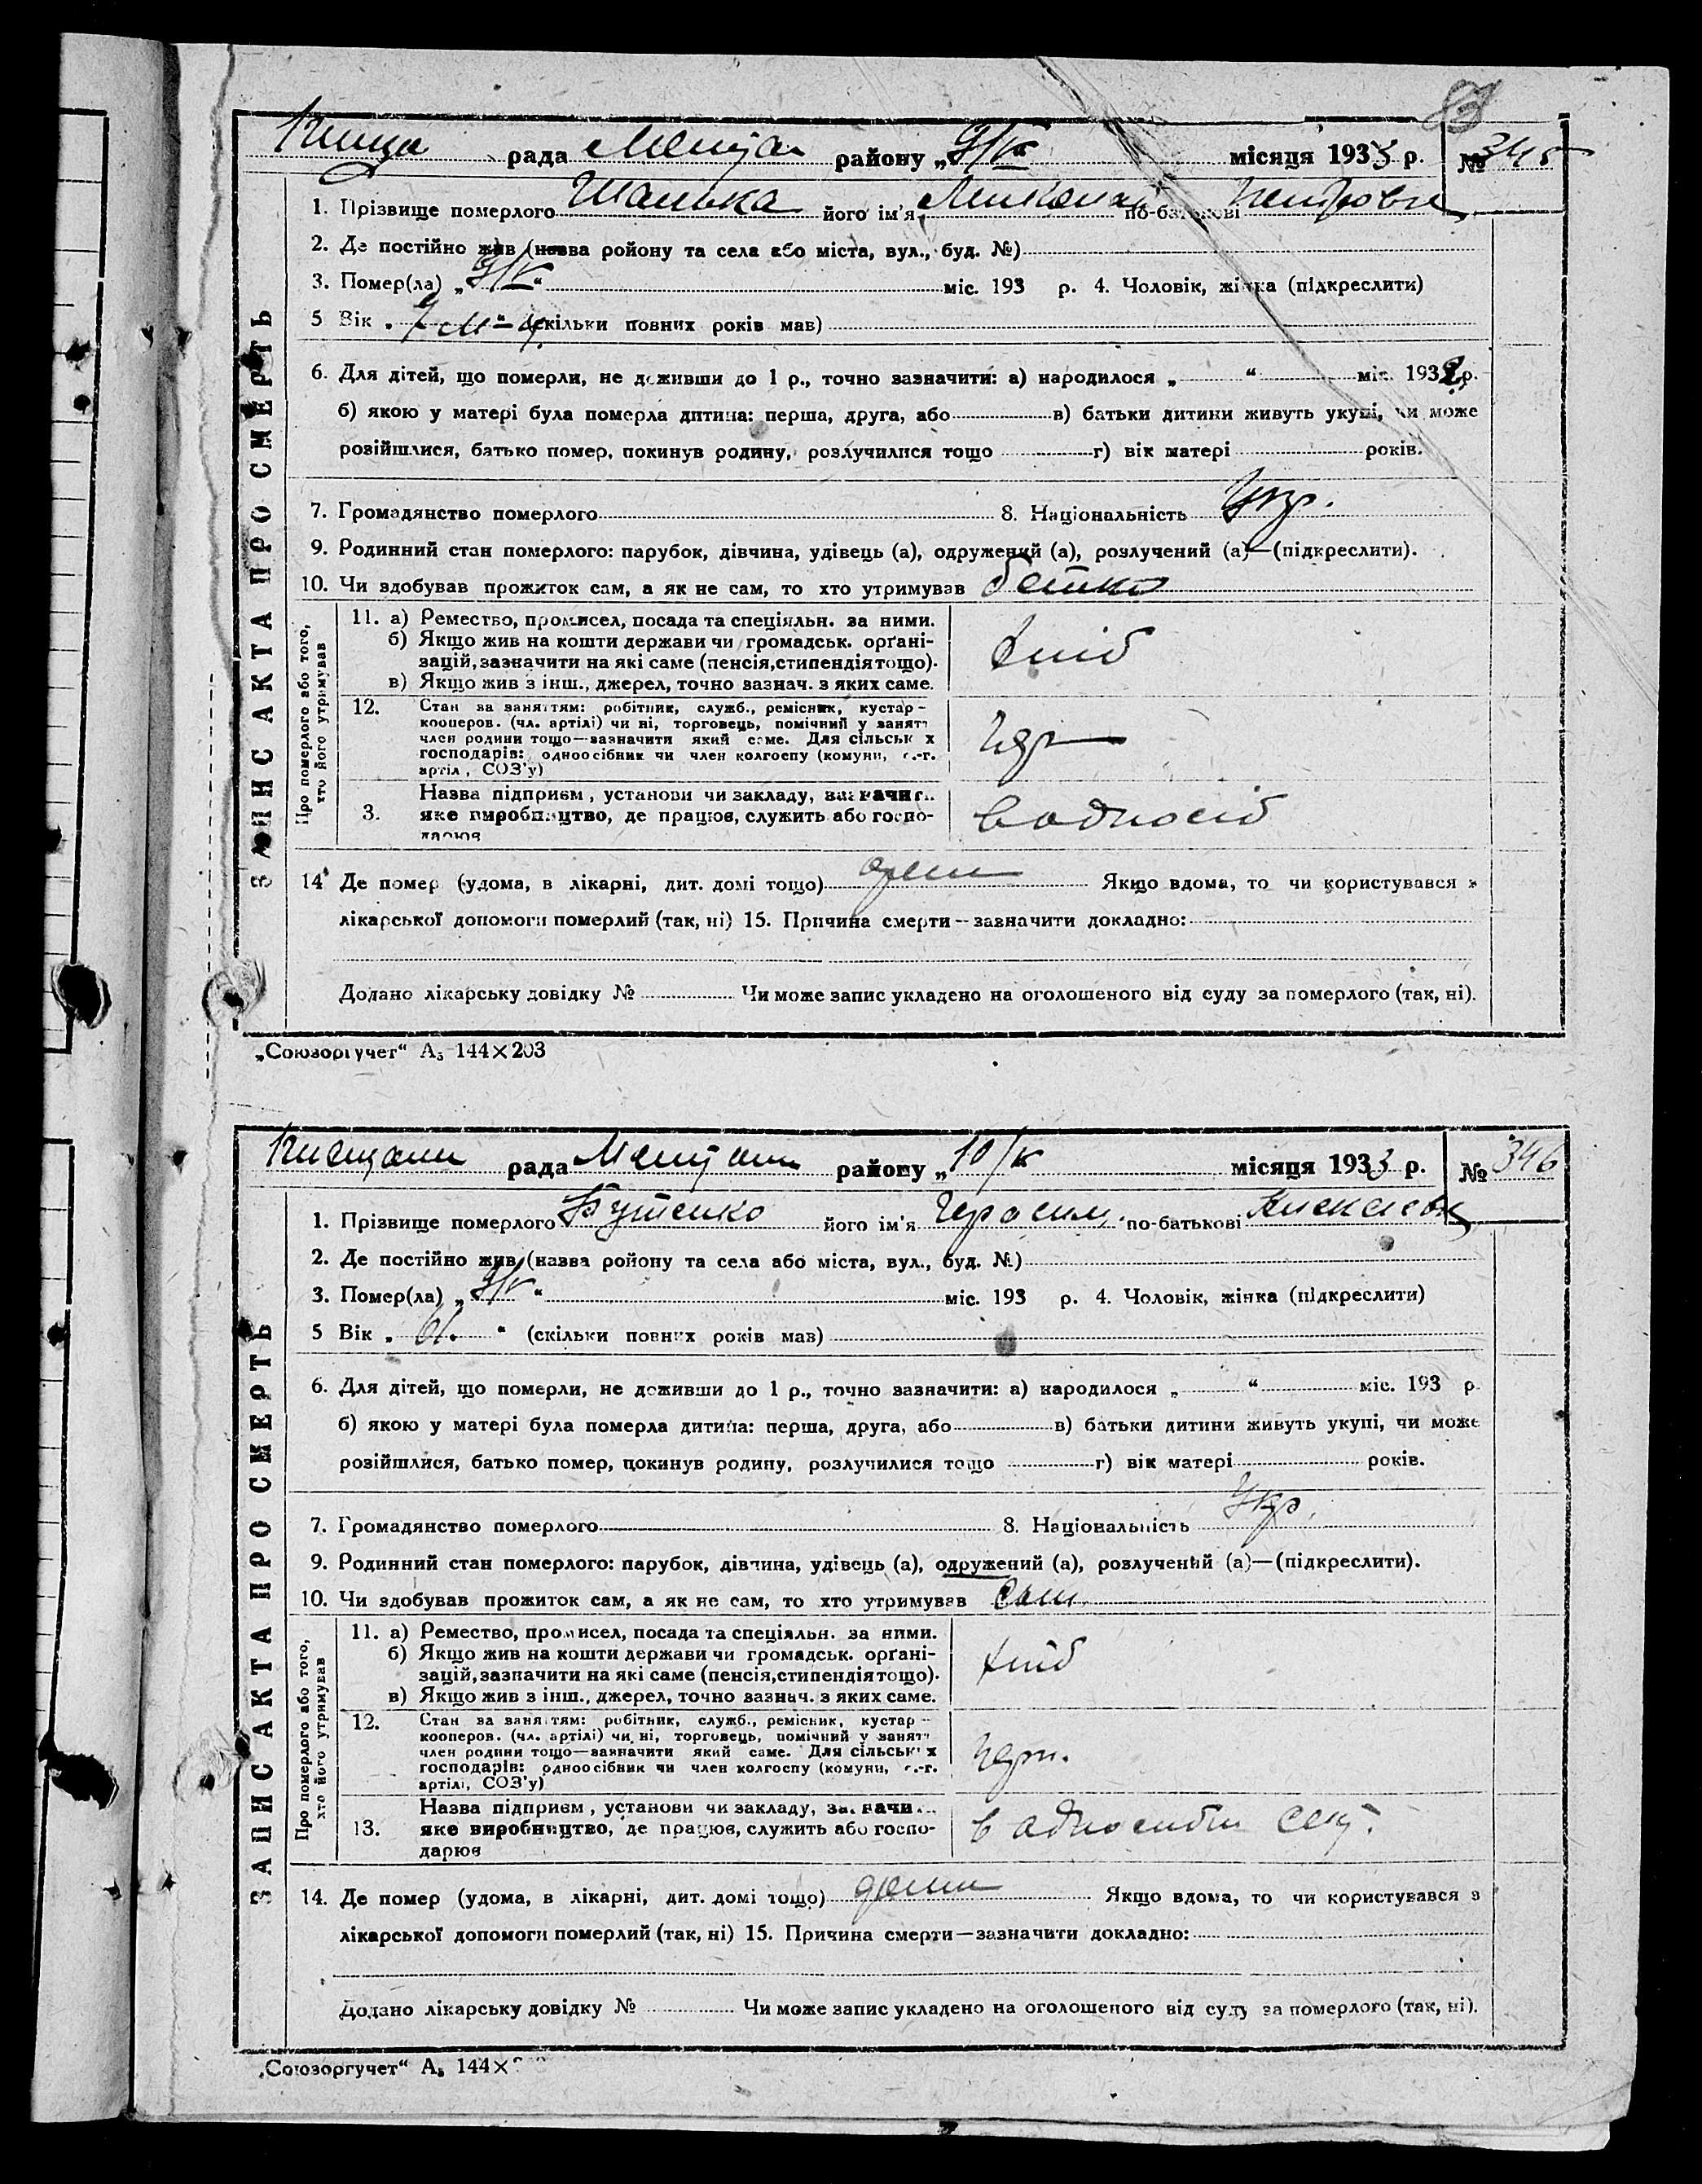 83
рада района „9/V“ місяця 1933 р. № 345
1. Прізвище померлого Шалька його ім'я Миколай по-батькові Петрович
2. Де постійно жив (назва ройону та села або міста, вул., буд. №)
3. Помер(ла) „9/V“ міс. 193 р. 4. Чоловік, жінка (підкреслити)
5 Вік „7 м-ц“ (скільки повних років мав)
6. Для дітей, що померли, не доживши до 1 р., точно зазначити: а) народилося „ “ міс. 1932 р.
б) якою у матері була померла дитина: перша, друга, або в) батьки дитини живуть укупі, чи може
розійшлися, батько помер, покинув родину, розлучилися тощо г) вік матері років.
7. Громадянство померлого 8. Національність Укр.
9. Родинний стан померлого: парубок, дівчина, удівець (а), одружений (а), розлучений (а)—(підкреслити).
10. Чи здобував прожиток сам, а як не сам, то хто утримував батько
ЗАПИС АКТА ПРО СМЕРТЬ
Про померлого або того,
хто його утримував
11. а) Ремество, промисел, посада та спеціяльн. за ними.
б) Якщо жив на кошти держави чи громадськ. орґані-
зацій, зазначити на які саме (пенсія, стипендія тощо).
в) Якщо жив з інш., джерел, точно зазнач. з яких саме.
хліб
12. Стан за заняттям: робітник, служб., ремісник, кустар-
кооперов. (чл. артілі) чи ні, торговець, помічний у занятт
член родини тощо—зазначити який саме. Для сільськ х
господарів: одноосібник чи член колгоспу (комуни, с.-г.
артіл, СОЗ'у)
3. Назва підприєм, установи чи закладу, зазначит..
яке виробництво, де працює, служить або госпо-
дарює
в односіб
14 Де помер (удома, в лікарні, дит. домі тощо) дома Якщо вдома, то чи користувався з
лікарської допомоги померлий (так, ні) 15. Причина смерти—зазначити докладно:
Додано лікарську довідку № Чи може запис укладено на оголошеного від суду за померлого (так, ні).
„Союзоргучет“ А₅ 144×203
рада района „10/V“ місяця 1933 р. № 346
1. Прізвище померлого Бутенко його ім'я Герасим по-батькові Алексієв
2. Де постійно жив (назва ройону та села або міста, вул., буд. №)
3. Помер(ла) „9/V“ міс. 193 р. 4. Чоловік, жінка (підкреслити)
5 Вік „61.“ (скільки повних років мав)
6. Для дітей, що померли, не доживши до 1 р., точно зазначити: а) народилося „ “ міс. 193 р.
б) якою у матері була померла дитина: перша, друга, або в) батьки дитини живуть укупі, чи може
розійшлися, батько помер, покинув родину, розлучилися тощо г) вік матері років.
7. Громадянство померлого 8. Національність Укр.
9. Родинний стан померлого: парубок, дівчина, удівець (а), одружений (а), розлучений (а)—(підкреслити).
10. Чи здобував прожиток сам, а як не сам, то хто утримував сам
ЗАПИС АКТА ПРО СМЕРТЬ
Про померлого або того,
хто його утримував
11. а) Ремество, промисел, посада та спеціяльн. за ними.
б) Якщо жив на кошти держави чи громадськ. орґані-
зацій, зазначити на які саме (пенсія, стипендія тощо).
в) Якщо жив з інш., джерел, точно зазнач. з яких саме.
хліб
12. Стан за заняттям: робітник, служб., ремісник, кустар-
кооперов. (чл. артілі) чи ні, торговець, помічний у занятт
член родини тощо—зазначити який саме. Для сільськ х
господарів: одноосібник чи член колгоспу (комуни, с.-г.
артілі, СОЗ'у)
13. Назва підприєм, установи чи закладу, зазначи...
яке виробництво, де працює, служить або госпо-
дарює
в односибн сек.
14. Де помер (удома, в лікарні, дит. домі тощо) дома Якщо вдома, то чи користувався з
лікарської допомоги померлий (так, ні) 15. Причина смерти—зазначити докладно:
Додано лікарську довідку № Чи може запис укладено на оголошеного від суду за померлого (так, ні).
„Союзоргучет“ А₅ 144×